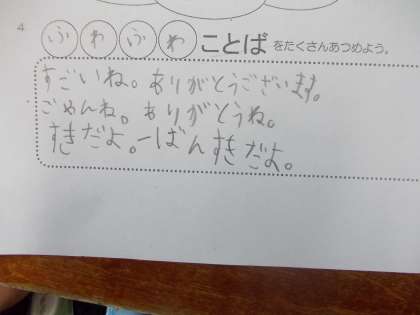 4
ふわふわことばをたくさんあつめよう。
すごいね。ありがとうございます。
ごめんね。ありがとうね。
すきだよ。一ばんすきだよ。